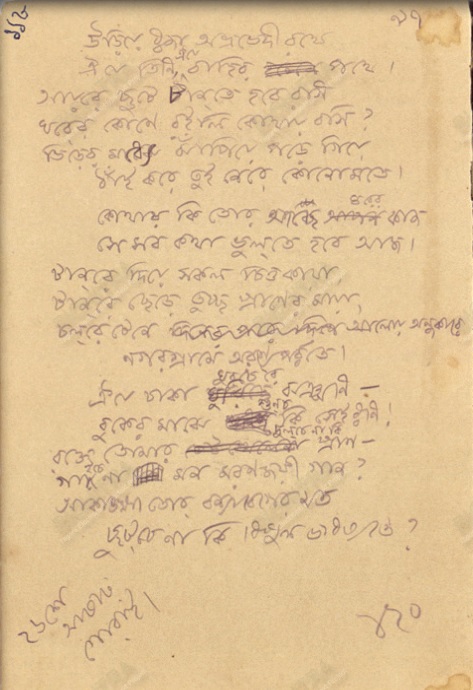 ১১৮
২৭
উড়িয়ে ধ্বজা অভ্রভেদী রথে
ঐ যে তিনি, ঐ যে বাহির পথে।
আয়রে ছুটে টানতে হবে রসি
ঘরের কোণে রইলি কোথায় বসি?
ভিড়ের মধ্যে ঝাঁপিয়ে পড়ে গিয়ে
ঠাঁই করে তুই নেরে কোনোমতে।
কোথায় কি তোর আছে ঘরের কাজ
সে সব কথা ভুলতে হবে আজ।
টানরে দিয়ে সকল চিত্তকায়া,
টানরে ছেড়ে তুচ্ছ প্রাণের মায়া,
চলরে টেনে আলোয় অন্ধকারে
নগরগ্রামে অরণ্যপর্বতে।
ঐ যে চাকা ঘুরচেরে ঝনঝনি—
বুকের মাঝে শুনচ কি সেই ধ্বনি!
রক্তে তোমার দুলচে না কি প্রাণ—
গাইচে না মন মরণজয়ী গান?
আকাঙ্ক্ষা তোর বন্যাবেগের মত
ছুটচে না কি বিপুল ভবিষ্যতে?
২৬শে
আষাঢ়
গোরাই।